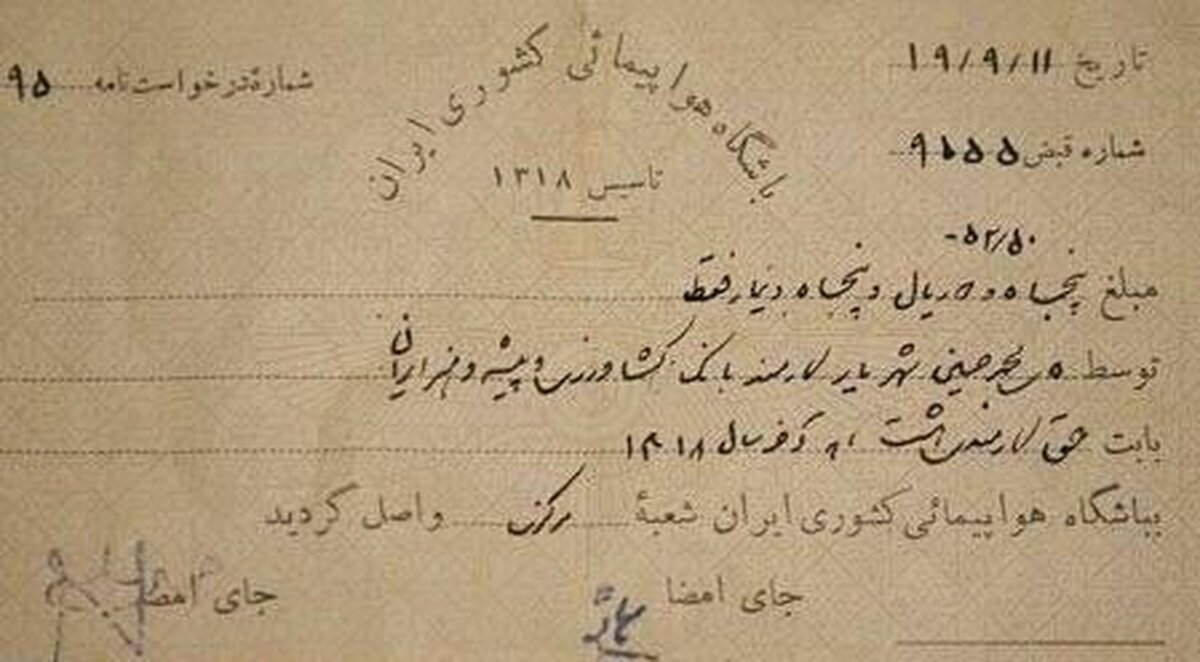 تاریخ ۱۹/۹/۱۱
باشگاه هواپیمائی کشوری ایران
شمارهٔ درخواست نامه ۹۵
شماره قبض ۹۱۵۵
تاسیس ۱۳۱۸
۵۲/۵۰-
مبلغ پنجاه و دو ریال و پنجاه دینار فقط
توسط محمدحسین شهریار کارمند بانک کشاورزی و پیشه و هنر ایران
بابت حق کارمندی هشت ماهه آخر سال ۱۳۱۸
بباشگاه هواپیمائی کشوری ایران شعبهٔ مرکز واصل گردید
جای امضا
جای امضا